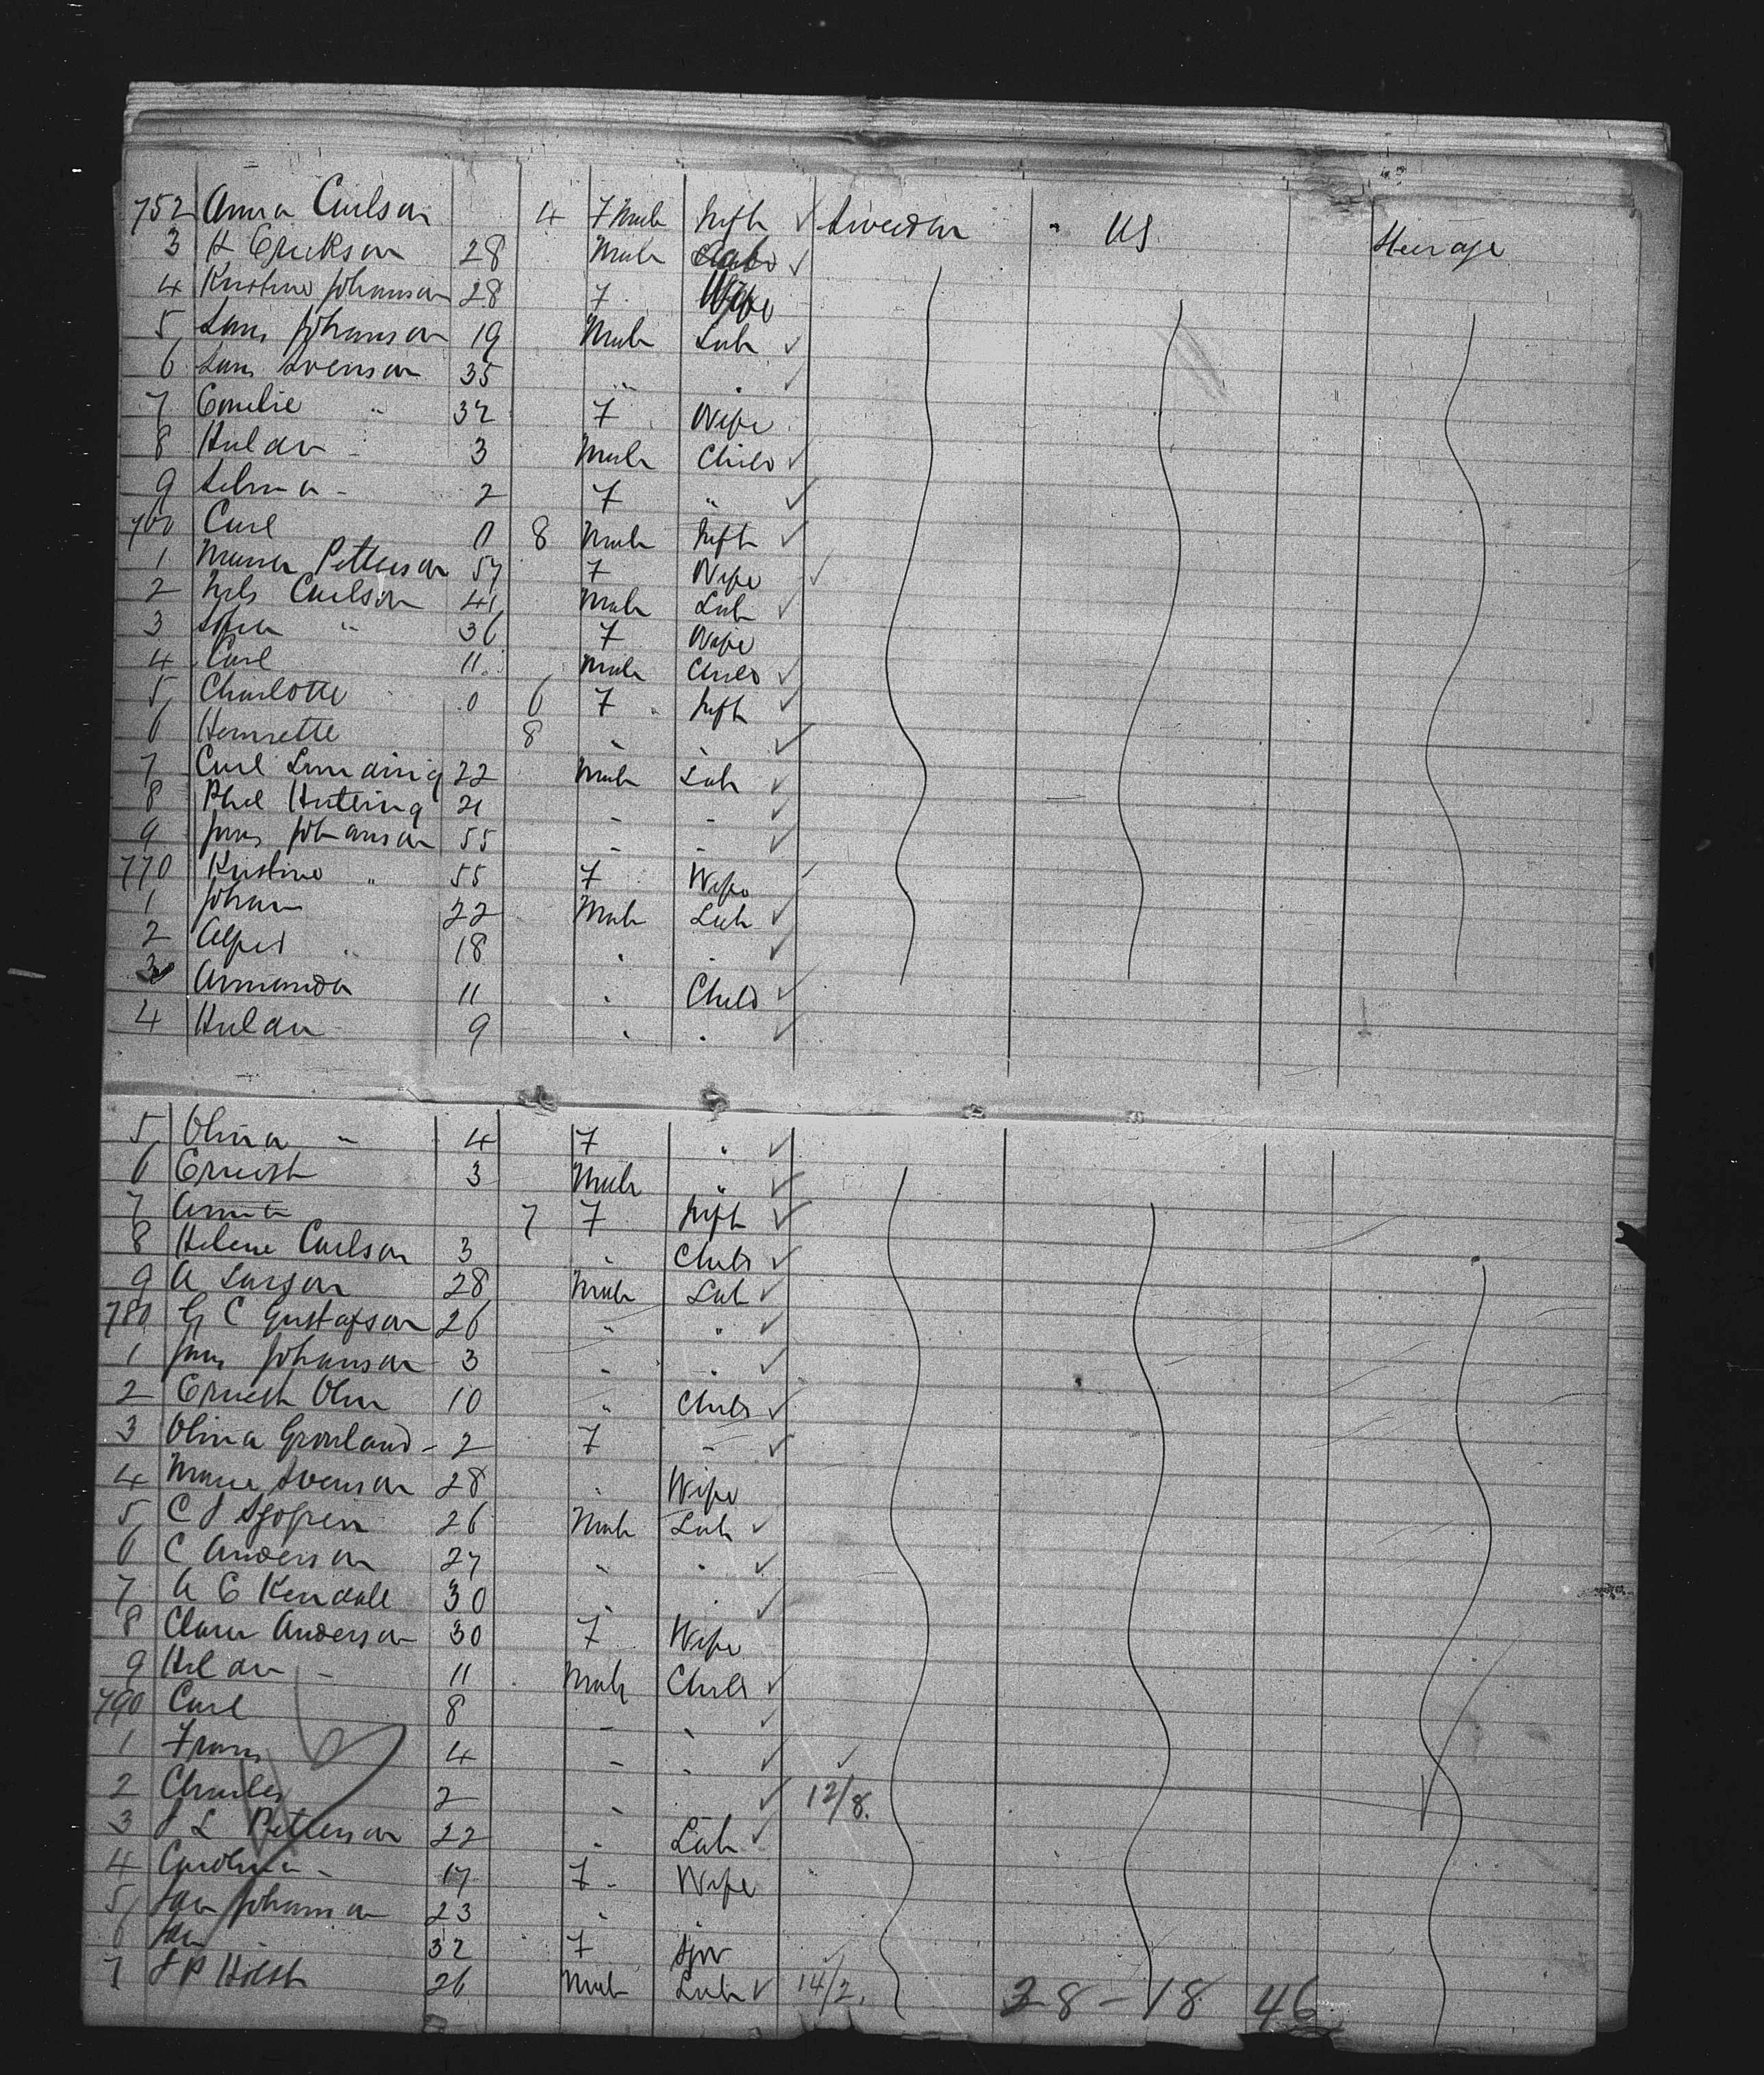 752 Anna Carlson 4 Female Inft ✓ Sweden " US Steerage
3 H Erickson 28 Male Lab ✓
4 Kristine Johanson 28 F Wife
5 Lars Johanson 19 Male Lab ✓
6 Lars Svenson 35 " " ✓
7 Emelie " 32 F Wife
8 Huldu - 3 Male Child ✓
9 Selma - 2 F " ✓
760 Carl 0 8 Male Inft ✓
1 Petterson 57 F Wife ✓
2 Nils Carlson 41 Male Lab ✓
3 Sofia " 36 F Wife
4 Carl 11 Male Child ✓
5 Charlotte 0 6 F Inft ✓
6 Henriette 8 " " ✓
7 Carl 22 Male Lab ✓
8 21 - - ✓
9 Jons Johanson 55 - - ✓
770 Kristine " 55 F Wife
1 Johan 22 Male Lab ✓
2 Alfred " 18 " " ✓
3 Armanda 11 " Child ✓
4 Huldu 9 " " ✓
5 Olina - 4 F " ✓
6 Ernest 3 Male " ✓
7 7 F Inft ✓
8 Helene Carlson 3 " Child ✓
9 A Larson 28 Male Lab ✓
780 G C Gustafson 26 " " ✓
1 Jons Johanson 3 " " ✓
2 Ernest 10 " Child ✓
3 Olina Gronland - 2 F - ✓
4 Marie Svenson 28 " Wife
5 C 26 Male Lab ✓
6 C Anderson 27 " " ✓
7 A C Kendall 30 " " ✓
8 Clara Anderson 30 F Wife
9 - 11 Male Child ✓
790 Carl 8 - " ✓
1 Frans 4 - " ✓ ✓
2 Charles 2 " ✓ 12/8.
3 L Petterson 22 " Lab ✓
4 Carolina - 17 F - Wife
5 Johanson 23 " "
6 32 F Spr
7 P Holst 26 Male Lab ✓ 14/2.
28-18 46